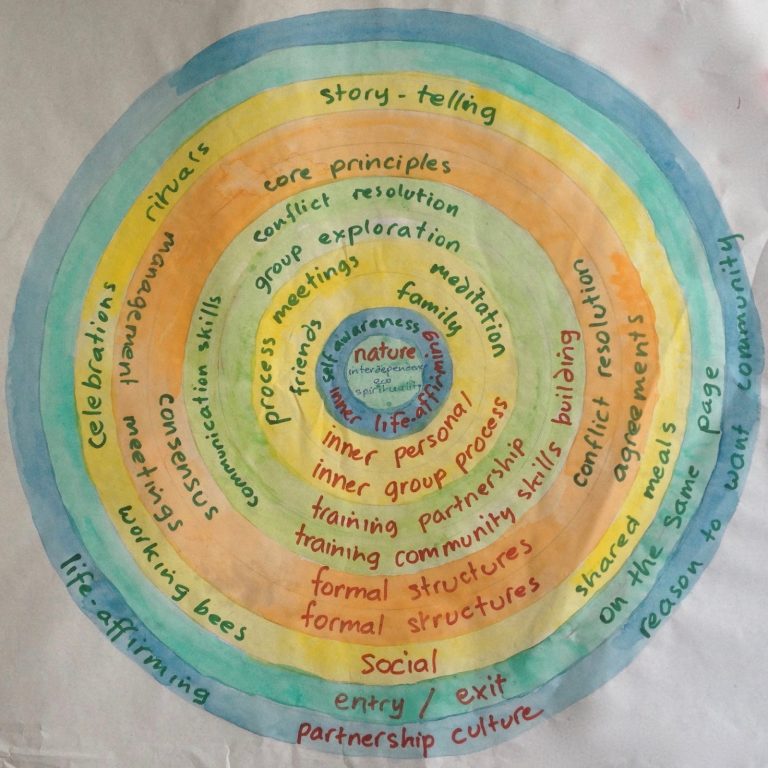 story-telling
rituals
celebrations
working bees
shared meals
social
core principles
management
meetings
consensus
conflict resolution
agreements
formal structures
formal structures
conflict resolution
group exploration
communication skills
training partnership
training community skills building
process meetings
meditation
friends
family
inner personal
inner group process
self awareness
inner life-affirming
nature
interdependence
eco
spirituality
on the same page
entry / exit
reason to want community
life-affirming
partnership culture